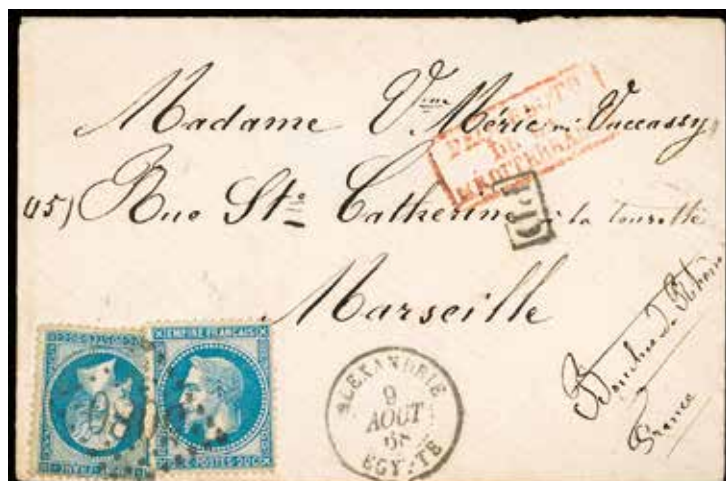 Madame Vme Méric née Vaccassy
PAQUEBOTS
DE LA
MEDITERRANEE
15) Rue Ste Catherine à la Tourette
P.D.
Marseille
Bouches du Rhône
France
EMPIRE FRANÇAIS
POSTES 20C
ALEXANDRIE
9
AOUT
68
EGYPTE